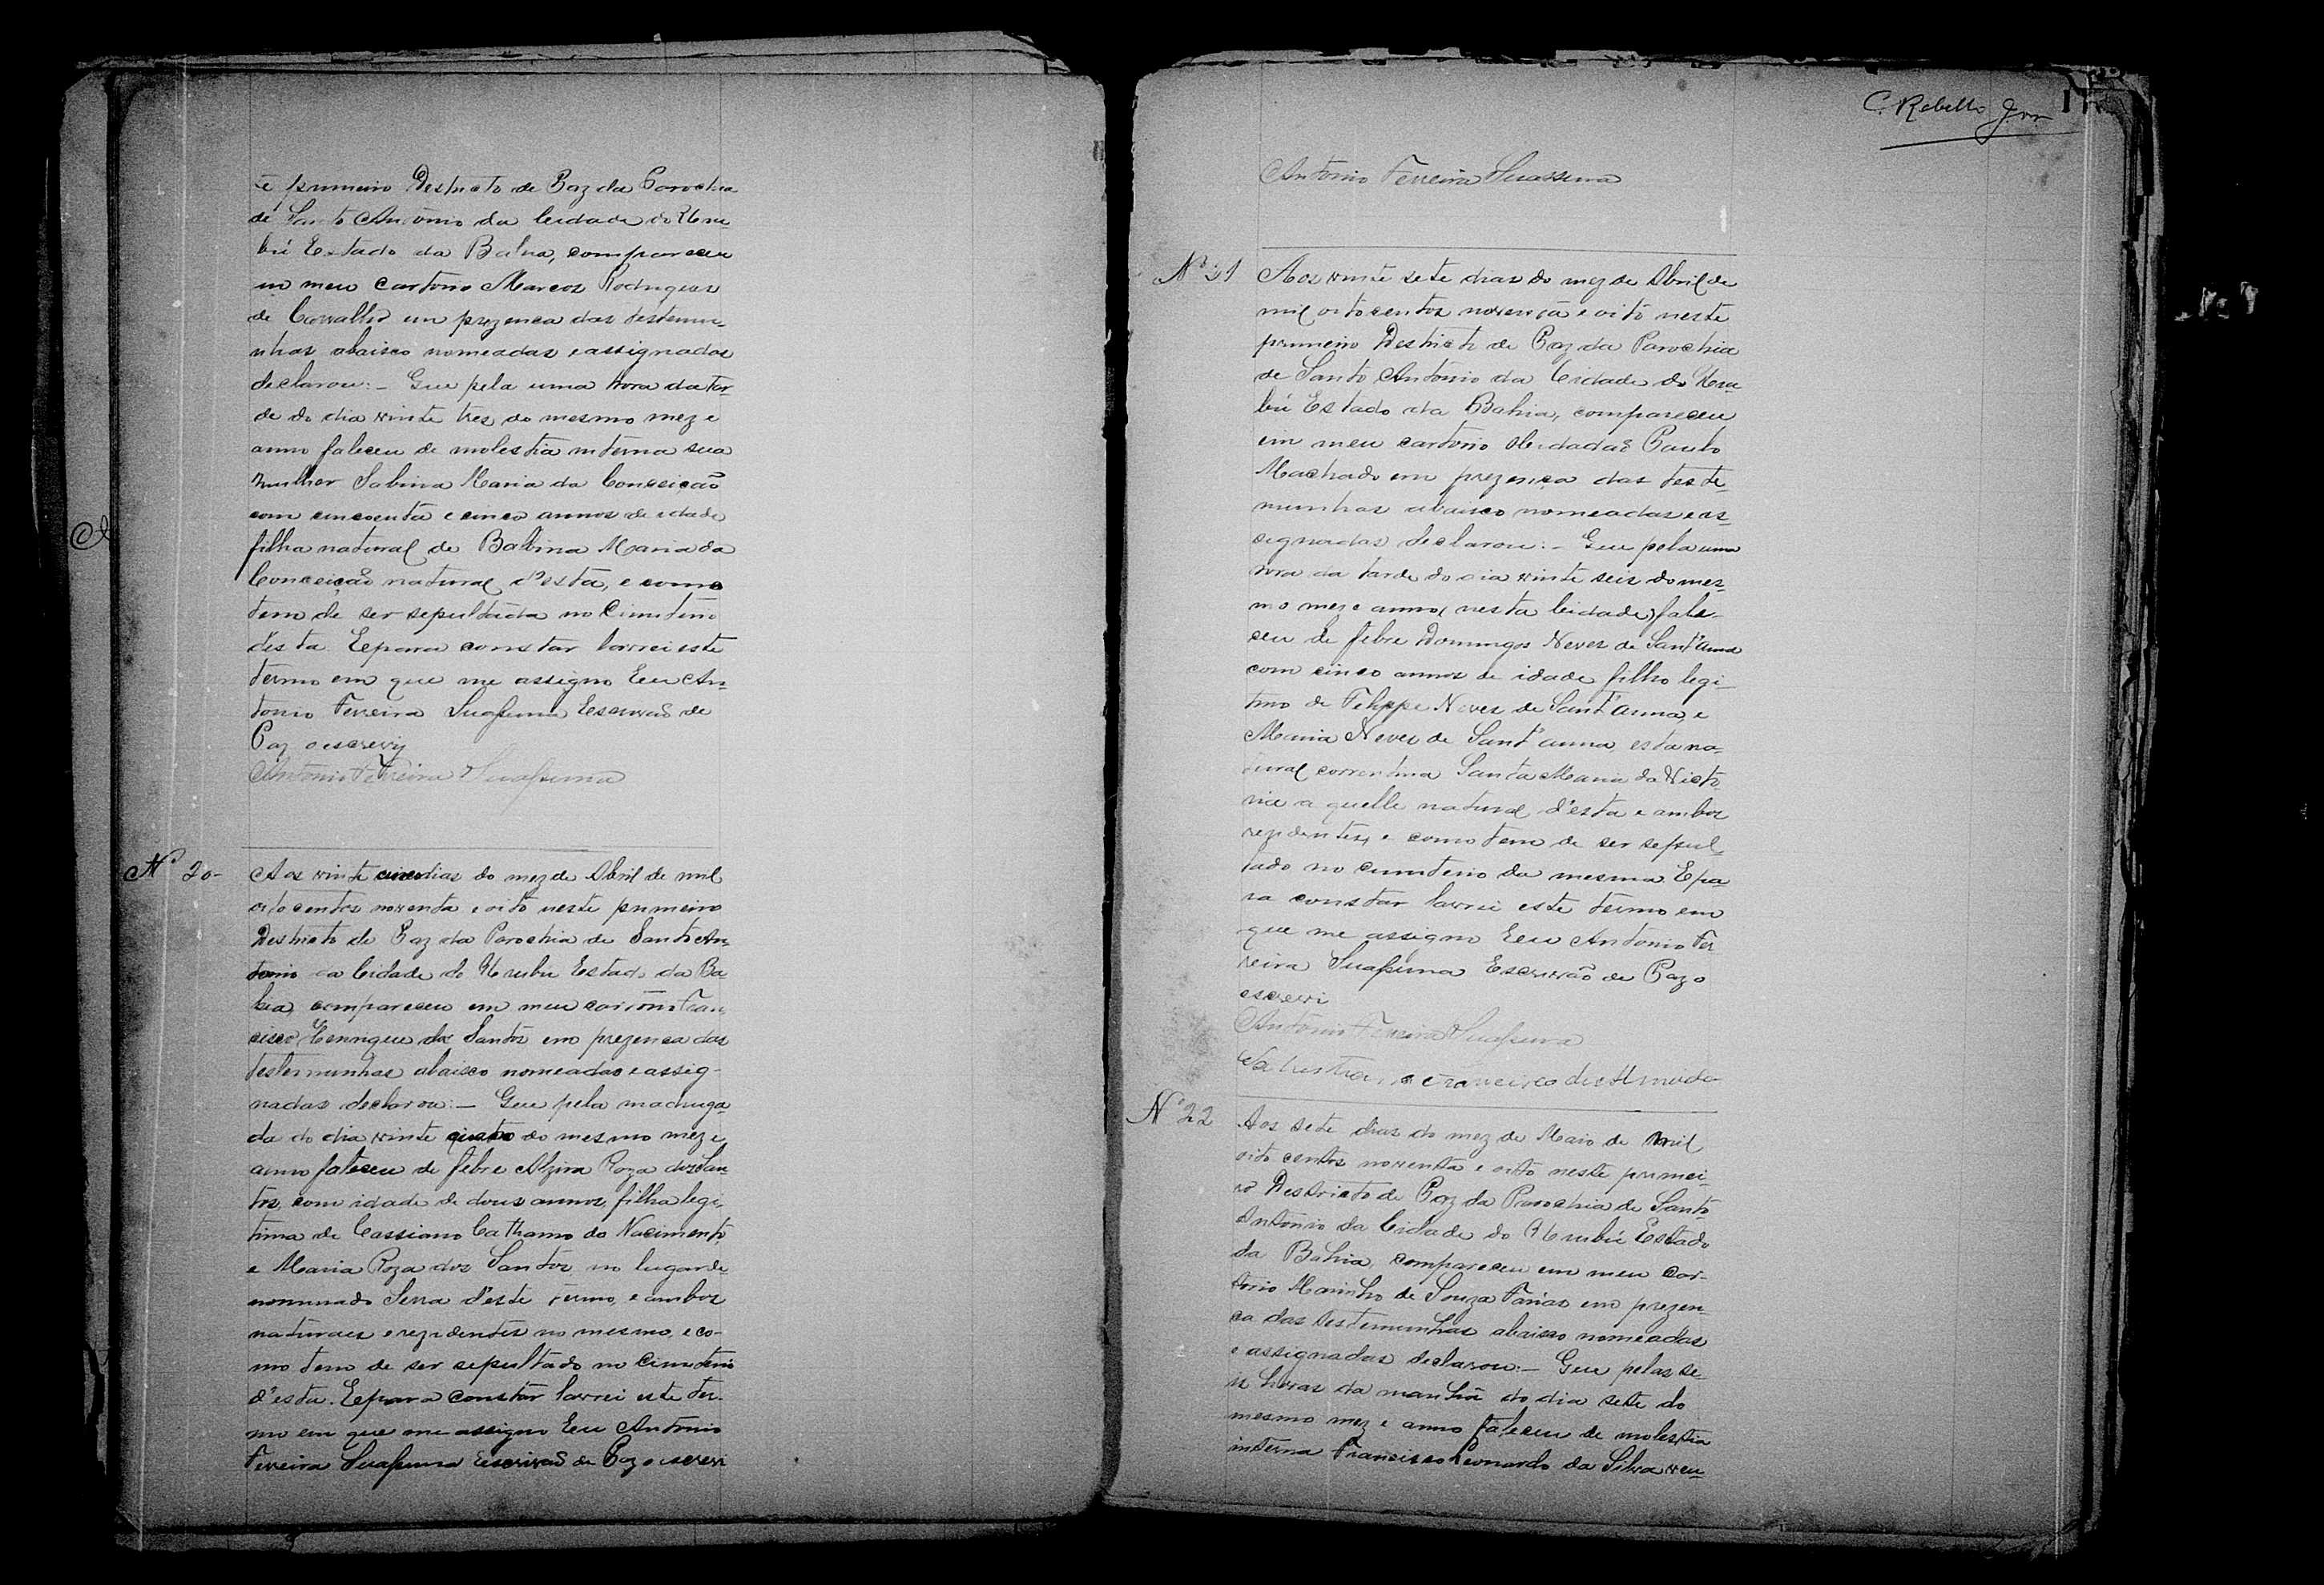 te primeiro Destricto de Paz da Parochia
de Santo Antonio da Cidade do Uru-
bú Estado da Bahia, compareceu
in meu Cartorio Marcos Rodrigues
de Carvalho em prezenca das testemu-
nhas abaisco nomeadas e assignadas
declarou: - Que pela uma hora da tar-
de do dia vinte tres do mesmo mez e
anno faleceu de molestia interna sua
mulher Sabina Maria da Conceicaõ
com cincoenta e cinco annos de idade
filha natural de Balbina Maria da
Conceição natural d'esta, e como
tem de ser sepultada no Cimiterio
desta. E para constar lavrei este
termo em que me assigno Eu An-
tonio Ferreira Suassuna Escrivaõ de
Paz o escrevy
Antonio Ferreira Suassuna
Nº 20-
Aos vinte cinco dias do mez de Abril de mil
oito centos noventa e oito neste primeiro
Destricto de Paz da Parochia de Santo An-
tonio da Cidade do Urubu Estado da Ba
hia, compareceu em meu cartorio Fran
cisco Henrique dos Santos em prezenca das
testemunhas abaisco nomeadas e assig-
nadas declarou: - Que pela madruga
da do dia vinte quatro do mesmo mez e
anno faleceu de febre Alzira Roza dos San
tos, com idade de dous annos, filha legi-
tima de Cassiano do Nacimento
e Maria Roza dos Santos no lugar de
nominado Serra d'este termo, e ambos
naturaes e rezidentes no mesmo, e co-
mo tem de ser sepultado no Cimiterio
d'esta. E para constar lavrei este ter-
mo em que me assigno Eu Antonio
Ferreira Suassuna Escrivaõ de Paz o escrevi
C. Rebello Jor.
Antonio Ferreira Suassuna
Nº 21
Aos vinte sete dias do mez de Abril de
mil oitocentos noventa e oito neste
primeiro Destricto de Paz da Parochia
de Santo Antonio da Cidade do Uru
bú Estado da Bahia, compareceu
em meu cartorio Paulo
Machado em prezença das teste-
munhas abaisco nomeadas e as-
signadas declarou: - Que pela uma
hora da tarde do dia vinte seis do mes-
mo mez e anno (nesta Cidade) fale-
ceu de febre Domingos Neves de Sant'anna
com cinco annos de idade filho legi-
timo de Felippe Neves de Sant'anna, e
Maria Neves de Sant'anna, esta na-
tural correntina Santa Maria da Victo
ria a quelle natural d'esta e ambos
rezidentes, e como tem de ser sepul-
tado no cimiterio da mesma. E pa-
ra constar lavrei este termo em
que me assigno Eeu Antonio Fer
reira Suassuna Escrivão de Paz o
escrevi
Antonio Ferreira Suassuna
Francisco de Almeida
Nº 22
Aos sete dias do mez de Maio de mil
oito centos noventa e oito neste primei-
ro Destricto de Paz da Parochia de Santo
Antonio da Cidade do Urubú Estado
da Bahia, compareceu em meu Car-
torio Marinho de Souza Farias em prezen-
ca das testemunhas abaisco nomeadas
e assignadas declarou: - Que pelas se-
te horas da manhã do dia sete do
mesmo mez e anno faleceu de molestia
interna Francisco Leonardo da Silva